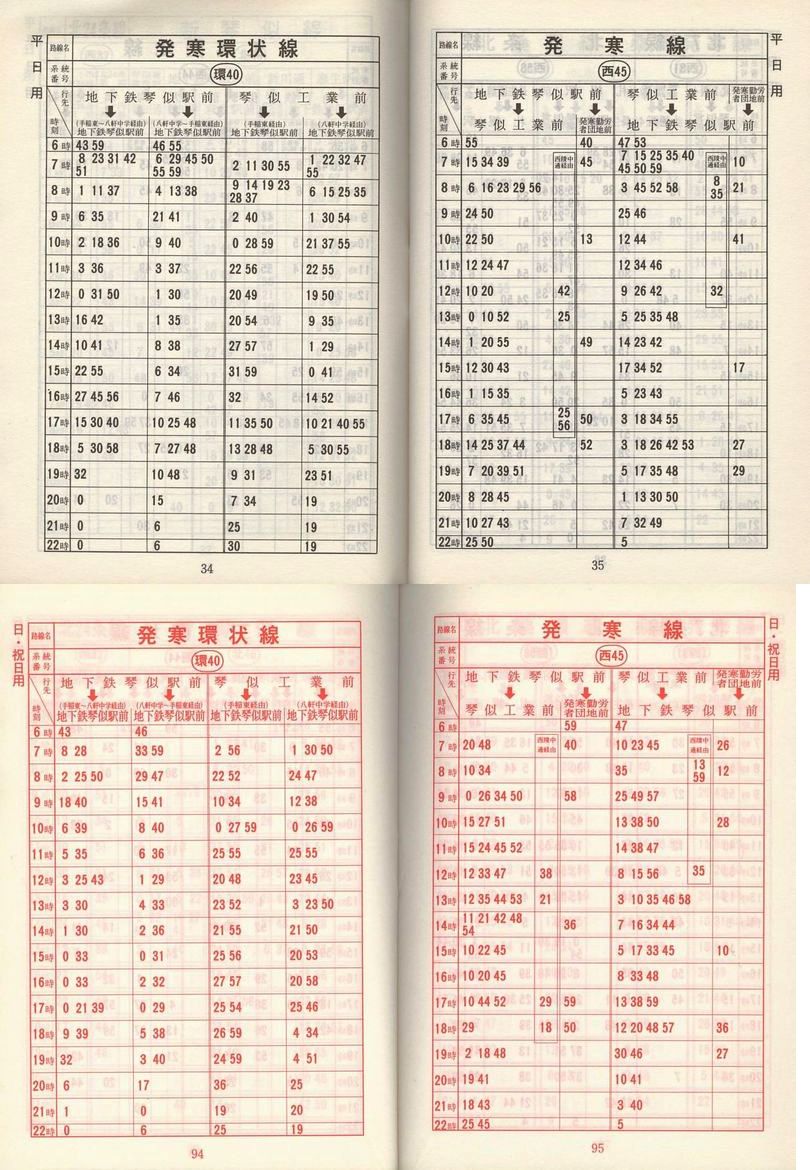 平日用
路線名 発寒環状線
系統番号 環40
行先 時刻
地下鉄琴似駅前 琴似工業前
(手稲東~八軒中学経由) 地下鉄琴似駅前 (八軒中学~手稲東経由) 地下鉄琴似駅前 (手稲東経由) 地下鉄琴似駅前 (八軒中学経由) 地下鉄琴似駅前
6時 43 59 46 55
7時 8 23 31 42 51 6 29 45 50 55 59 2 11 30 55 1 22 32 47 55
8時 1 11 37 4 13 38 9 14 19 23 28 37 6 15 25 35
9時 6 35 21 41 2 40 1 30 54
10時 2 18 36 9 40 0 28 59 21 37 55
11時 3 36 3 37 22 56 22 55
12時 0 31 50 1 30 20 49 19 50
13時 16 42 1 35 20 54 9 35
14時 10 41 8 38 27 57 1 29
15時 22 55 6 34 31 59 0 41
16時 27 45 56 7 46 32 14 52
17時 15 30 40 10 25 48 11 35 50 10 21 40 55
18時 5 30 58 7 27 48 13 28 48 5 30 55
19時 32 10 48 9 31 23 51
20時 0 15 7 34 19
21時 0 6 25 19
22時 0 6 30 19
34
平日用
路線名 発寒線
系統番号 西45
行先 時刻
地下鉄琴似駅前 琴似工業前 発寒勤労者団地前
琴似工業前 発寒勤労者団地前 地下鉄琴似駅前
6時 55 40 47 53
7時 15 34 39 西陵中通経由 45 7 15 25 35 40 45 50 59 西陵中通経由 10
8時 6 16 23 29 56 3 45 52 58 8 35 21
9時 24 50 25 46
10時 22 50 13 12 44 41
11時 12 24 47 12 34 46
12時 10 20 42 9 26 42 32
13時 0 10 52 25 5 25 35 48
14時 1 20 55 49 14 23 42
15時 12 30 43 17 34 52 17
16時 1 15 35 5 23 43
17時 6 35 45 25 56 50 3 18 34 55
18時 14 25 37 44 52 3 18 26 42 53 27
19時 7 20 39 51 5 17 35 48 29
20時 8 28 45 1 13 30 50
21時 10 27 43 7 32 49
22時 25 50 5
35
日・祝日用
路線名 発寒環状線
系統番号 環40
行先 時刻
地下鉄琴似駅前 琴似工業前
(手稲東~八軒中学経由) 地下鉄琴似駅前 (八軒中学~手稲東経由) 地下鉄琴似駅前 (手稲東経由) 地下鉄琴似駅前 (八軒中学経由) 地下鉄琴似駅前
6時 43 46
7時 8 28 33 59 2 56 1 30 50
8時 2 25 50 29 47 22 52 24 47
9時 18 40 15 41 10 34 12 38
10時 6 39 8 40 0 27 59 0 26 59
11時 5 35 6 36 25 55 25 55
12時 3 25 43 1 29 20 48 23 45
13時 3 30 4 33 23 52 3 23 50
14時 1 30 2 36 21 55 21 50
15時 0 33 0 31 25 56 20 53
16時 0 33 2 32 27 57 20 58
17時 0 21 39 0 29 25 54 25 46
18時 9 39 5 38 26 59 4 34
19時 32 3 40 24 59 4 51
20時 6 17 36 25
21時 1 0 19 20
22時 0 6 25 19
94
日・祝日用
路線名 発寒線
系統番号 西45
行先 時刻
地下鉄琴似駅前 琴似工業前 発寒勤労者団地前
琴似工業前 発寒勤労者団地前 地下鉄琴似駅前
6時 59 47
7時 20 48 西陵中通経由 40 10 23 45 西陵中通経由 26
8時 10 34 35 13 59 12
9時 0 26 34 50 58 25 49 57
10時 15 27 51 13 38 50 28
11時 15 24 45 52 14 38 47
12時 12 33 47 38 8 15 56 35
13時 12 35 44 53 21 3 10 35 46 58
14時 11 21 42 48 54 36 7 16 34 44
15時 10 22 45 5 17 33 45 10
16時 10 20 45 8 33 48
17時 10 44 52 29 59 13 38 59
18時 29 18 50 12 20 48 57 36
19時 2 18 48 30 46 27
20時 19 41 10 41
21時 18 43 3 40
22時 25 45 5
95